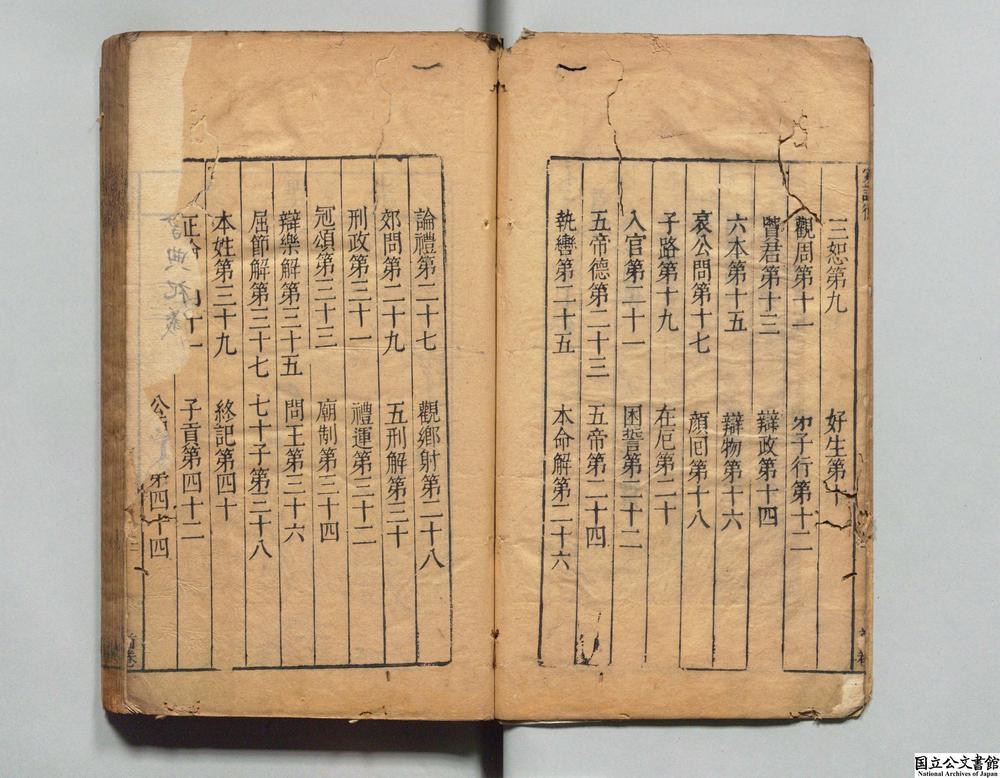 三恕第九　好生第十
觀周第十一　弟子行第十二
賢君第十三　辯政第十四
六本第十五　辯物第十六
哀公問第十七　顏回第十八
子路第十九　在厄第二十
入官第二十一　困誓第二十二
五帝德第二十三　五帝第二十四
執轡第二十五　本命解第二十六
論禮第二十七　觀鄉射第二十八
郊問第二十九　五刑解第三十
刑政第三十一　禮運第三十二
冠頌第三十三　廟制第三十四
辯樂解第三十五　問王第三十六
屈節解第三十七　七十子第三十八
本姓第三十九　終記第四十
正論　十一　子貢第四十二
公　第四十四
首卷
国立公文書館
National Archives of Japan